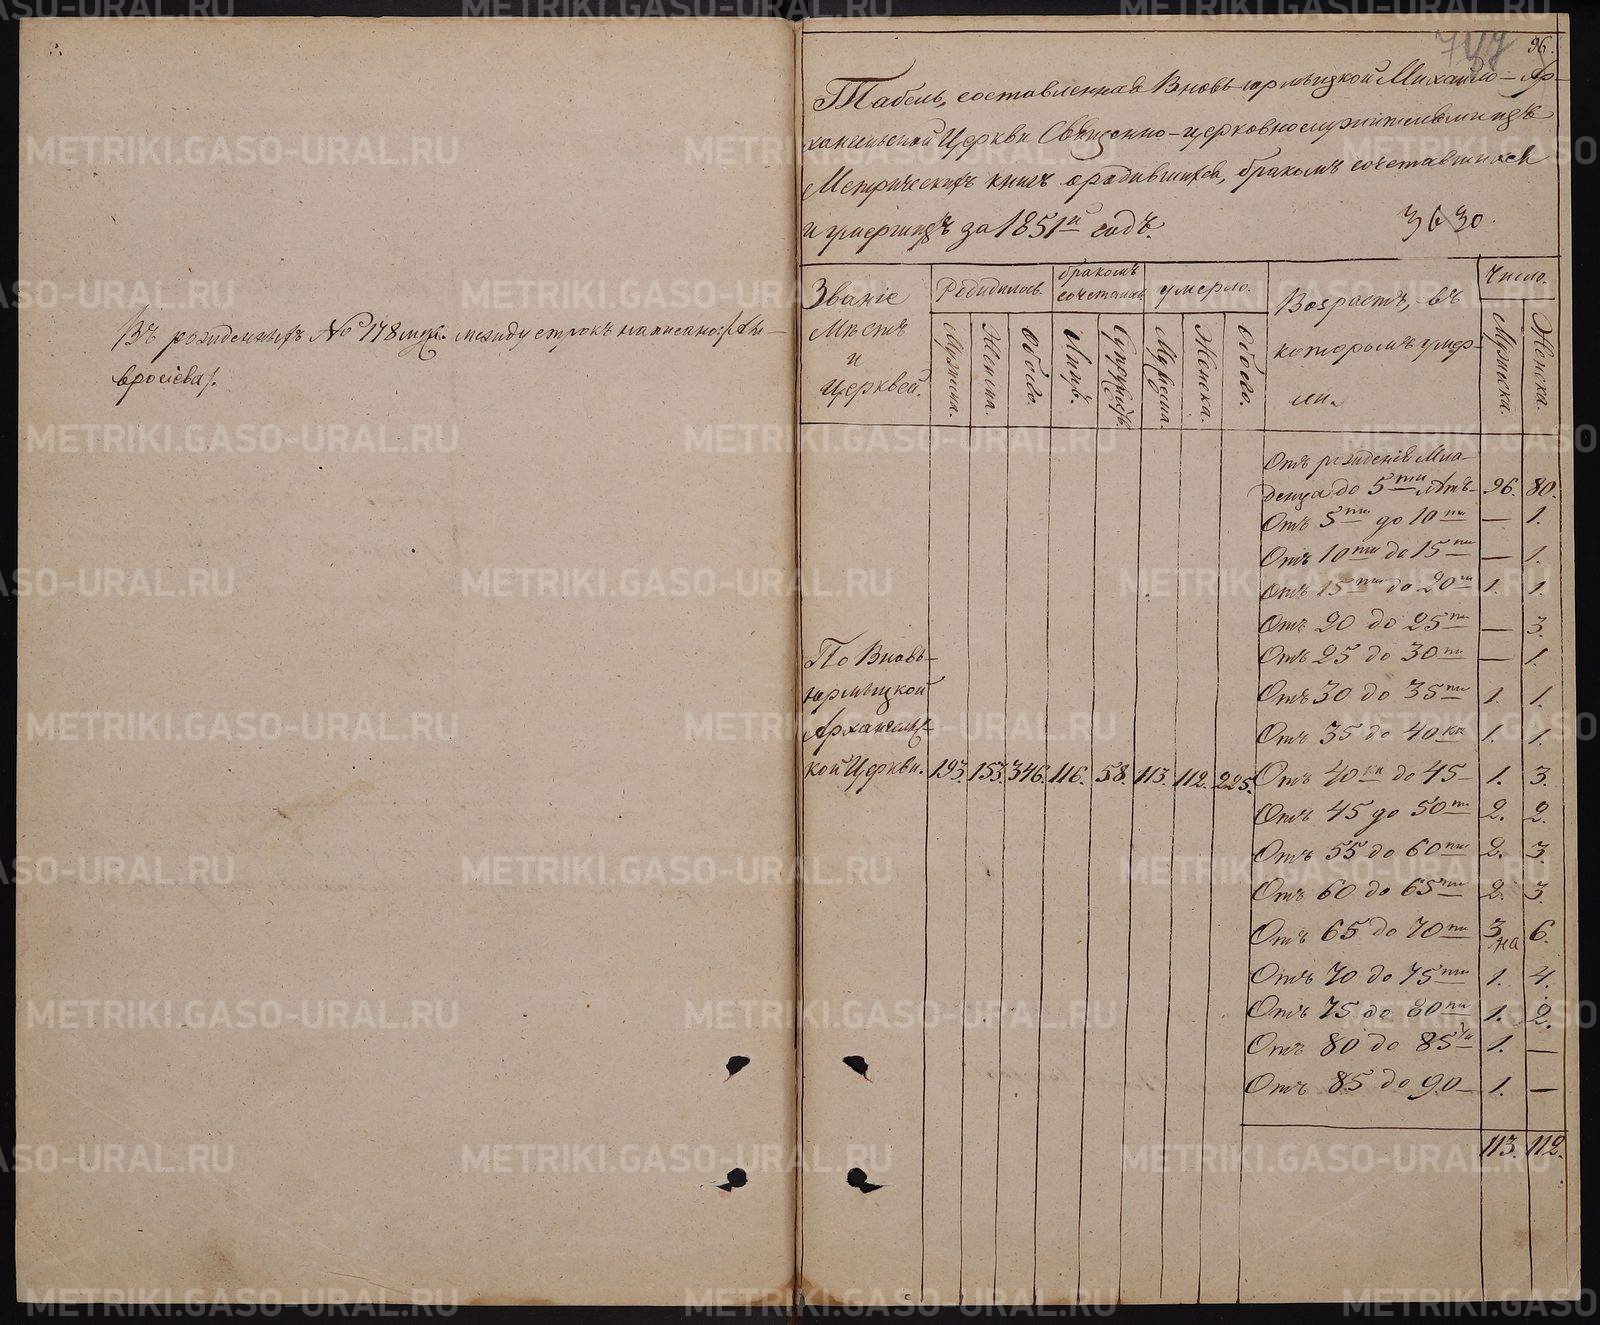 Въ рожденныхъ № 178 муж. между строкъ написано: /Ам-
вросіева/.
96.
Табель, составленная Вновь-юрмыцкой Михайло-Ар-
хангельской Церкви Священно-церковнослужителями изъ
Метрическихъ книгъ о родившихся, бракомъ сочетавшихся
и умершихъ за 1851й годъ.
3630.
Званіе Мѣстъ и Церквей. Родилось. бракомъ сочеталось умерло. Возрастъ, въ которомъ умер-ли. Число.
Мужеска. Женска. Обоего. Лицъ. Супружествъ. Мужеска. Женска. Обоего. Мужеска. Женска.
Отъ рожденія Мла-
денца до 5ти лѣтъ- 96. 80.
Отъ 5ти до 10ти — 1.
Отъ 10ти до 15ти — 1.
Отъ 15ти до 20ти 1. 1.
Отъ 20 до 25ти — 3.
Отъ 25 до 30ти — 1.
Отъ 30 до 35ти 1. 1.
Отъ 35 до 40ка 1. 1.
По Вновь-
юрмыцкой
Архангельс-
кой Церкви. 193. 153. 346. 116. 58. 113. 112. 225. Отъ 40ка до 45- 1. 3.
Отъ 45 до 50ти 2. 2.
Отъ 55 до 60ти 2. 3.
Отъ 60 до 65ти 2. 3.
Отъ 65 до 70ти 3 6.
на
Отъ 70 до 75ти 1. 4.
Отъ 75 до 80ти 1. 2.
Отъ 80 до 85ти 1. —
Отъ 85 до 90- 1. —
113. 112.
METRIKI.GASO-URAL.RU